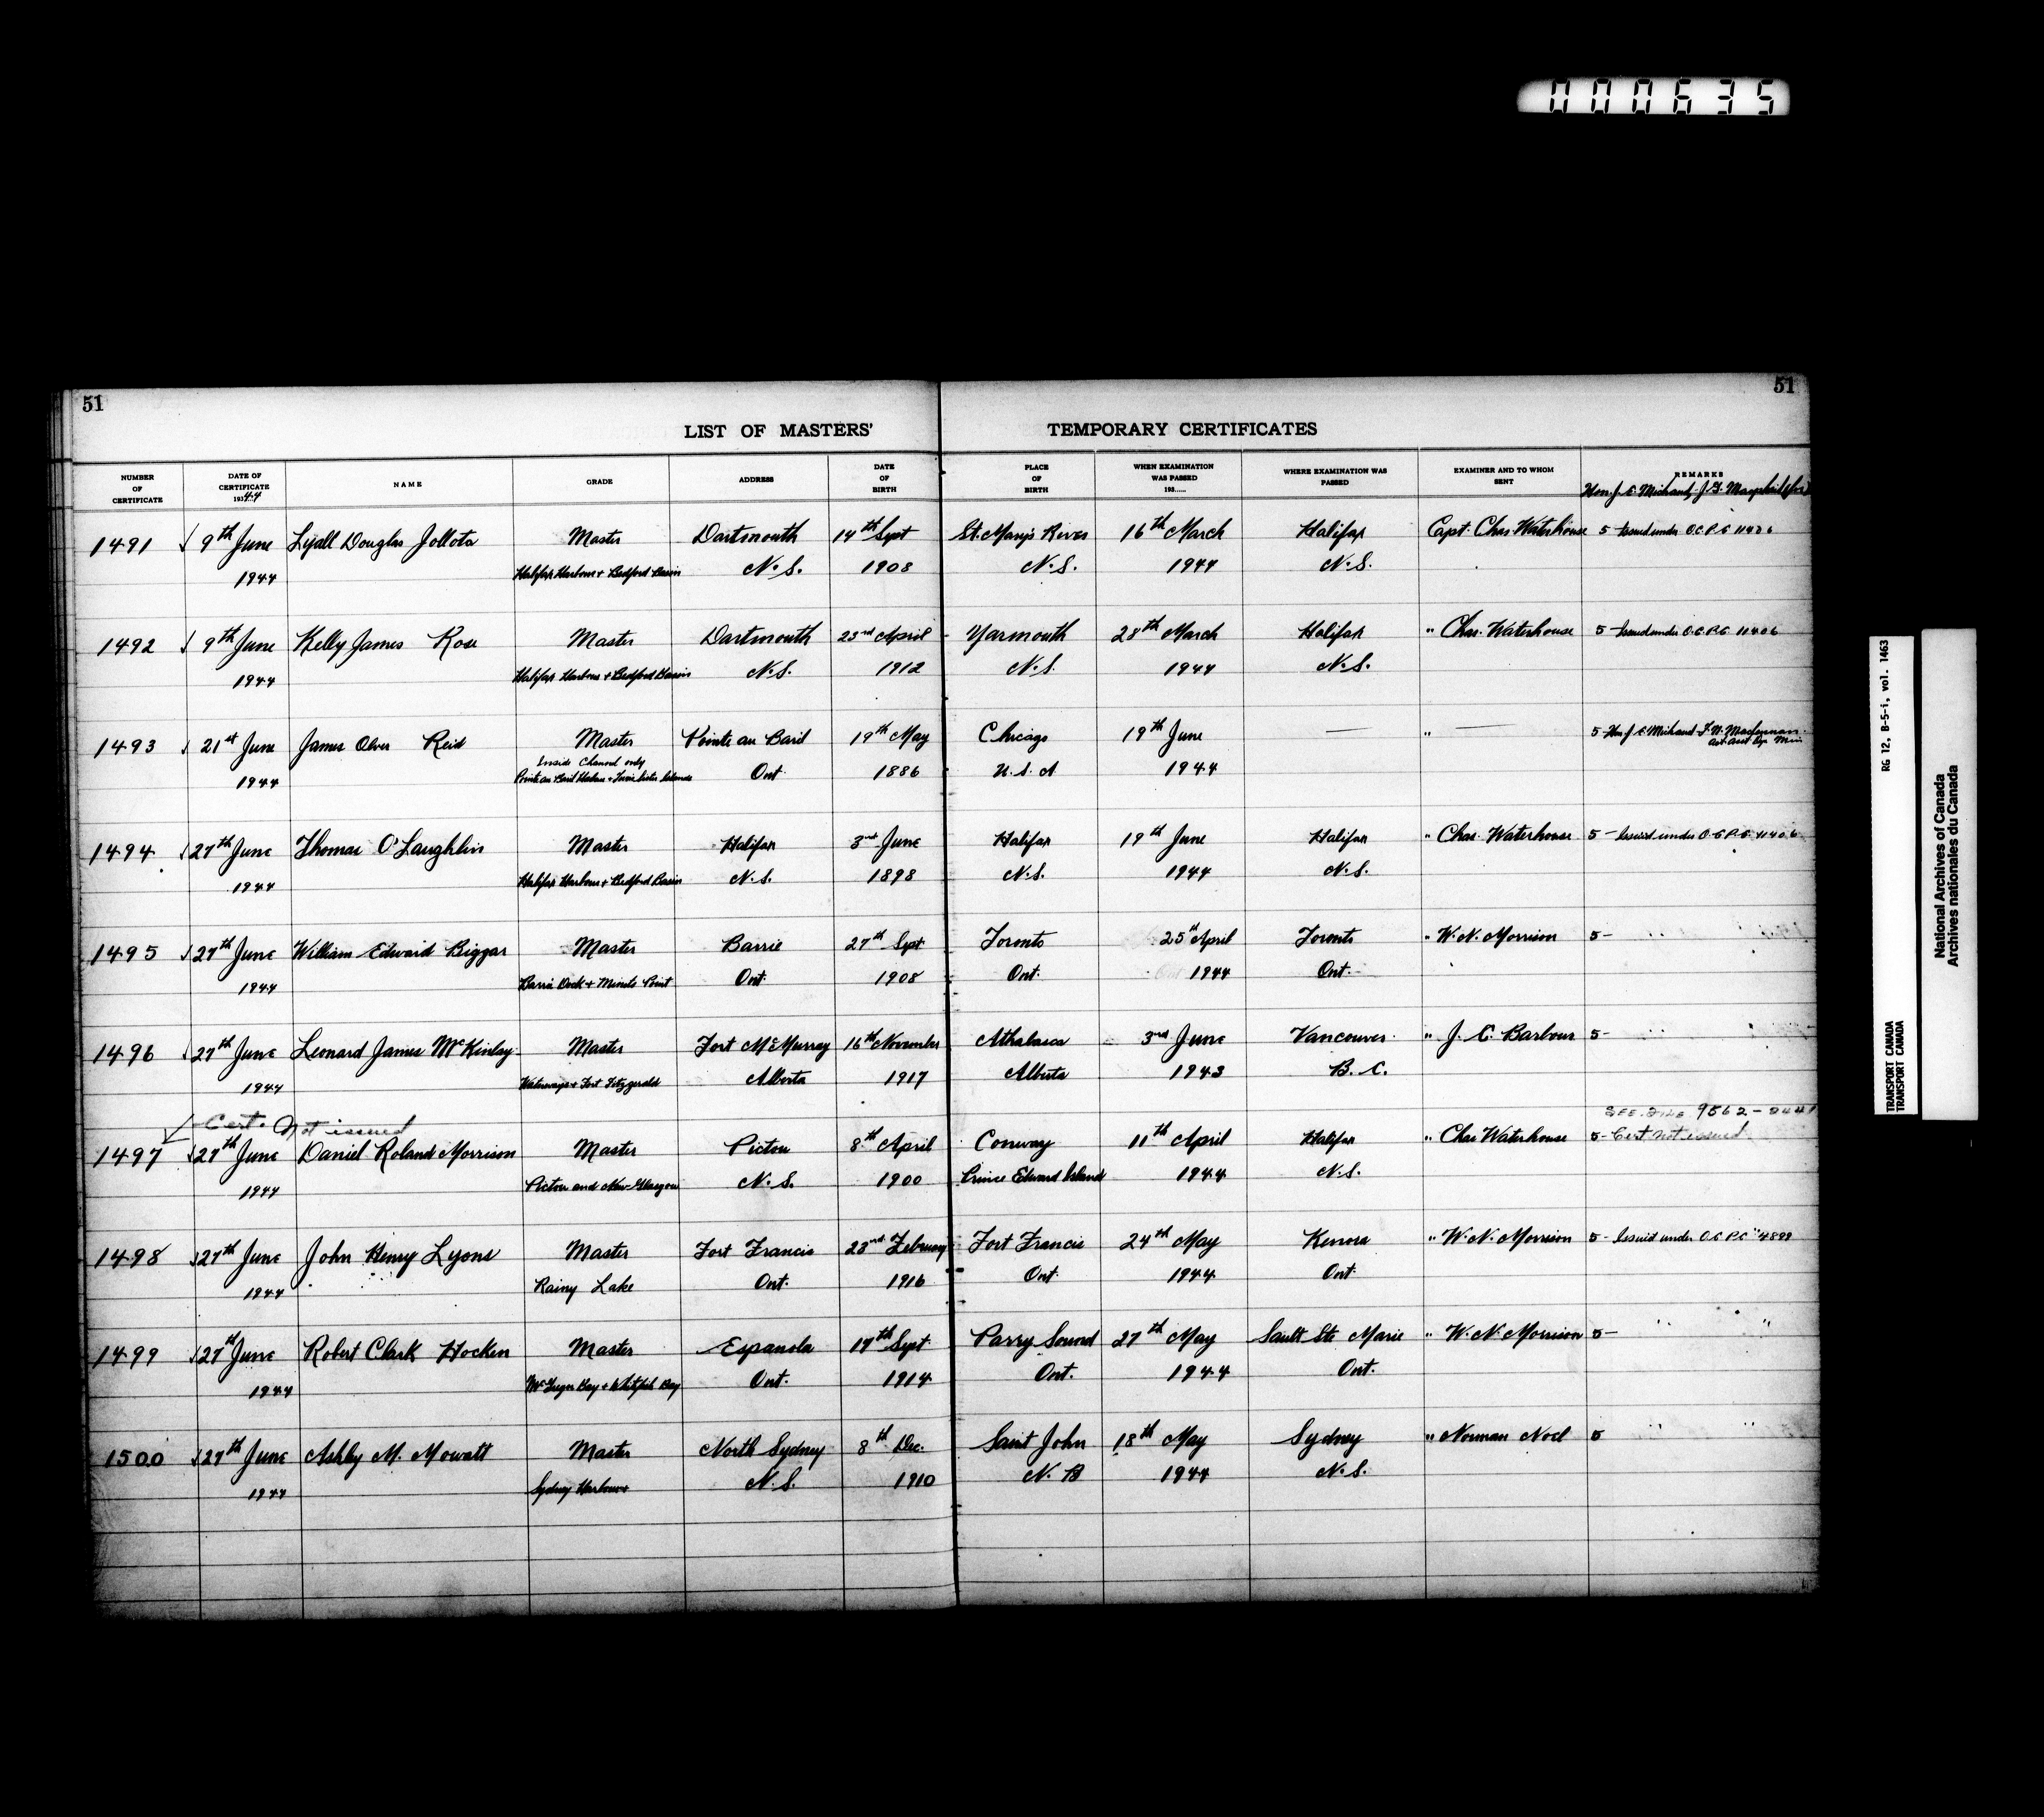 000635
51
51
LIST OF MASTERS' TEMPORARY CERTIFICATES
NUMBER OF CERTIFICATE
DATE OF CERTIFICATE 19344
NAME
GRADE
ADDRESS
DATE OF BIRTH
PLACE OF BIRTH
WHEN EXAMINATION WAS PASSED 193.....
WHERE EXAMINATION WAS PASSED
EXAMINER AND TO WHOM SENT
REMARKS
Hon. J. E. Michaud
1491 9th June Lyall Douglas Jollota Master Dartmouth 14th Sept St. Mary's River 16th March Halifax Capt. Chas. Waterhouse 5 - Issued under O.C. P.C. 11406
1944 Halifax Harbour + Bedford Basin N.S. 1908 N.S. 1944 N.S.
1492 9th June Kelly James Rose Master Dartmouth 23rd April Yarmouth 28th March Halifax " Chas. Waterhouse 5 - Issued under O.C. P.C. 11406
1944 Halifax Harbour + Bedford Basin N.S. 1912 N.S. 1944 N.S.
1493 21st June James Oliver Reid Master Pointe au Baril 19th May Chicago 19th June — " — 5 - Hon J. E. Michaud - 
Inside Channel only
1944 Pointe au Baril Ont. 1886 U.S.A 1944
1494 27th June Thomas O'Laughlin Master Halifax 3rd June Halifax 19th June Halifax " Chas. Waterhouse 5 - Issued under O.C. P.C. 11406
1944 Halifax Harbour + Bedford Basin N.S. 1898 N.S. 1944 N.S.
1495 27th June William Edward Biggar Master Barrie 27th Sept Toronto 25th April Toronto " W. N. Morrison 5 - " "
1944 Barrie Dock + Minets Point Ont. 1908 Ont. 1944 Ont.
1496 27th June Leonard James McKinlay Master Fort McMurray 16th November Athabasca 3rd June Vancouver " J. C. Barbour 5 - " "
1944 Waterways + Fort Fitzgerald Alberta 1917 Alberta 1943 B.C.
Cert. Not issued SEE FILE 9562-
1497 27th June Daniel Roland Morrison Master Pictou 8th April Conway 11th April Halifax " Chas Waterhouse 5 - Cert not issued
1944 Pictou and New Glasgow N.S. 1900 Prince Edward Island 1944 N.S.
1498 27th June John Henry Lyons Master Fort Francis 23rd February Fort Francis 24th May Kenora " W. N. Morrison 5 - Issued under O.C. P.C. 4899
1944 Rainy Lake Ont. 1916 Ont. 1944 Ont.
1499 27th June Robert Clark Hocken Master Espanola 17th Sept Parry Sound 27th May Sault Ste Marie " W. N. Morrison 5 - " "
1944 McGregor Bay + Whitefish Bay Ont. 1914 Ont. 1944 Ont.
1500 27th June Ashby M. Mowatt Master North Sydney 8th Dec. Saint John 18th May Sydney " Norman Noel 5 " "
1944 Sydney Harbour N.S. 1910 N.B 1944 N.S.
RG 12, B-5-i, vol. 1463
TRANSPORT CANADA
TRANSPORT CANADA
National Archives of Canada
Archives nationales du Canada